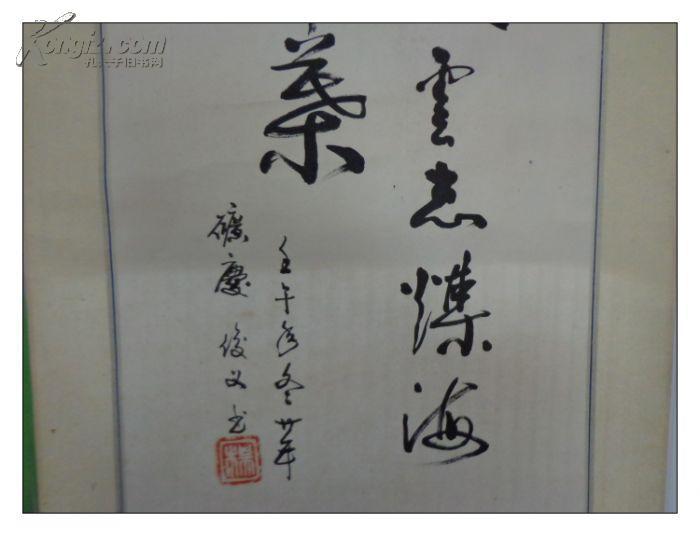 雲志煤海
業
壬午年冬廿年
礦慶俊义书
Kongfz.com
孔夫子旧书网